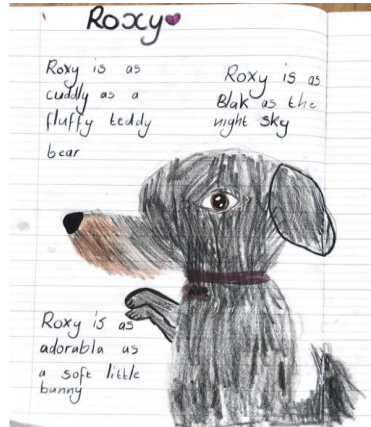 Roxy
Roxy is as
cuddly as a
fluffy teddy
bear
Roxy is as
Blak as the
night sky
Roxy is as
adorabla as
a soft little
bunny